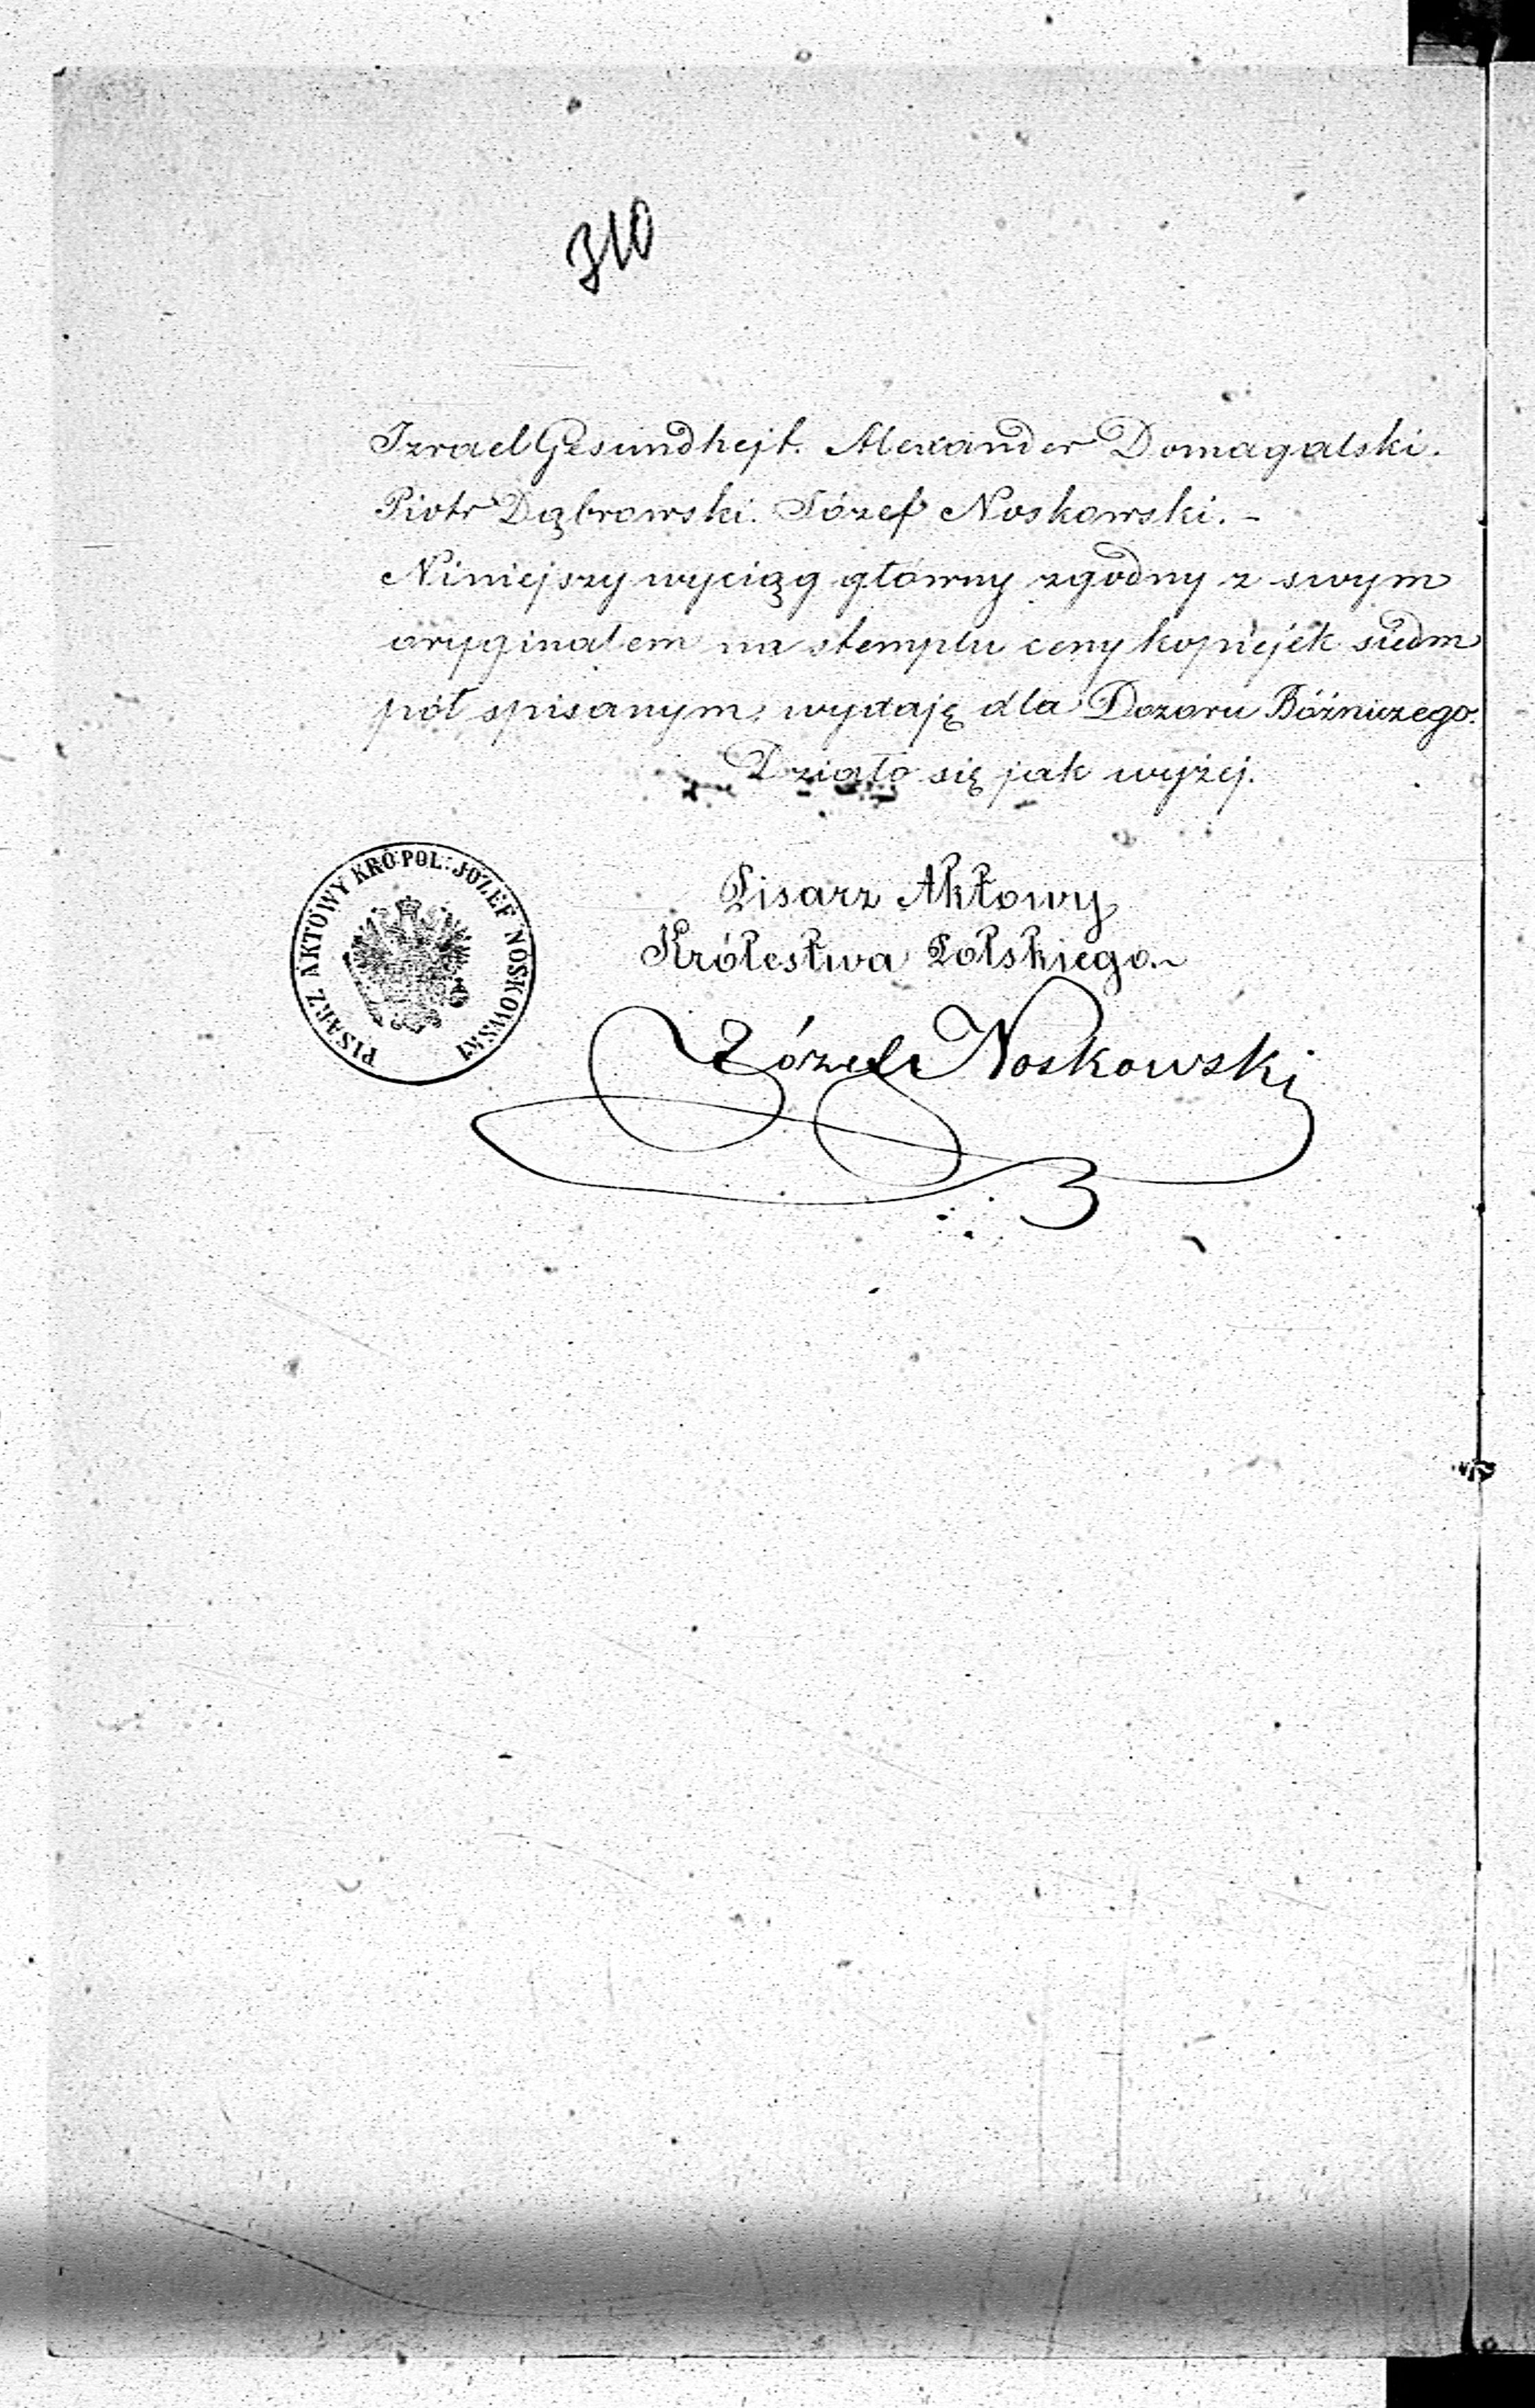 310
Izrael Gesundhejt. Alexander Domagalski.
Piotr Dąbrowski. Józef Noskowski. –
Niniejszy wyciąg główny zgodny z swym
oryginałem na stemplu ceny kopiejek siedm
pół spisanym, wydaję dla Dozoru Bóżniczego.
Działo się jak wyżej.
PISARZ AKTOWY KRÓ POL: JÓZEF NOSKOWSKI
Pisarz Aktowy
Królestwa Polskiego.~
Józef Noskowski